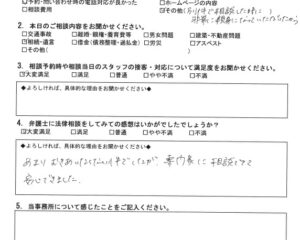 □予約・問い合わせ時の電話対応が良かった □ホームページの内容
□相談費用 ☑その他(
2. 本日のご相談内容をお聞かせください。
□交通事故 □離婚・親権・養育費等 □男女問題 □建築・不動産問題
□相続・遺言 □借金(債務整理・過払金) □労災 □アスベスト
□その他( )
3. 相談予約時や相談当日のスタッフの接客・対応について満足度をお聞かせください。
☑大変満足 □満足 □普通 □やや不満 □不満
◆よろしければ、具体的な理由をお聞かせください◆
4. 弁護士に法律相談をしてみての感想はいかがでしたでしょうか?
☑大変満足 □満足 □普通 □やや不満 □不満
◆よろしければ、具体的な理由をお聞かせください◆
専門家に相談できて
安心できました。
5. 当事務所について感じたことをご記入ください。